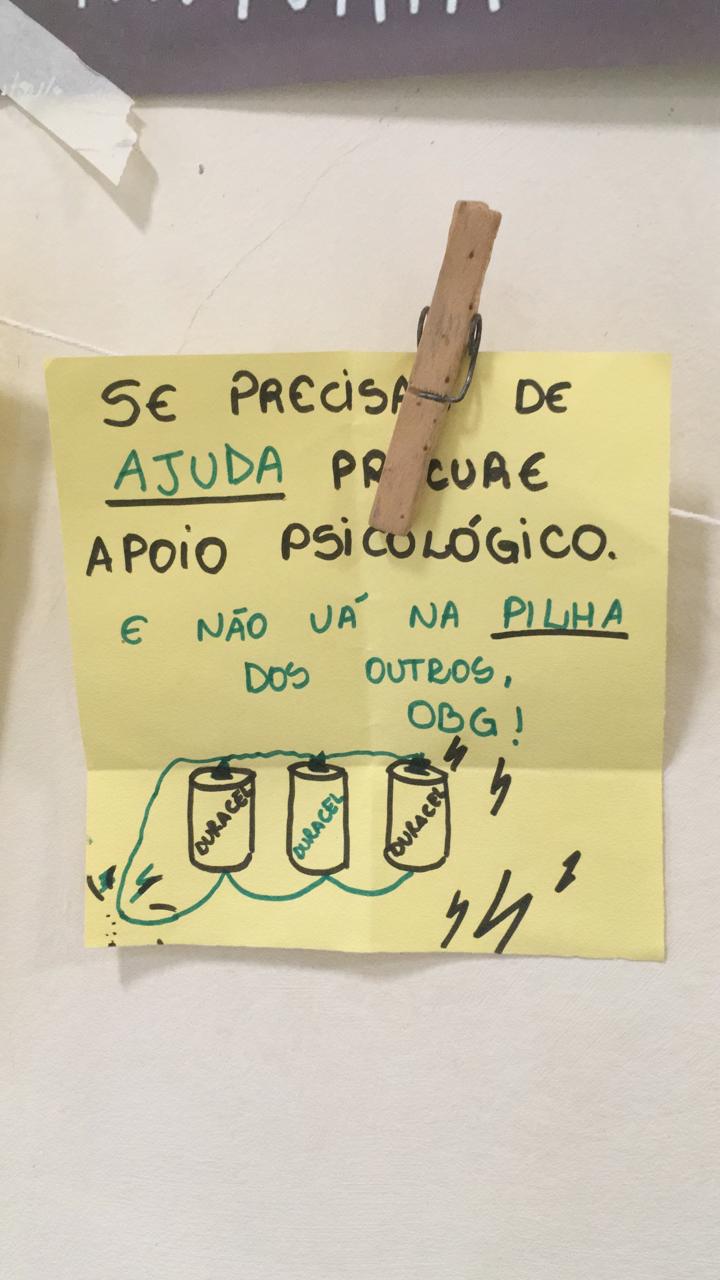 SE DE
AJUDA PROCURE
APOIO PSICOLÓGICO.
E NÃO VÁ NA PILHA
DOS OUTROS,
OBG!
DURACEL DURACEL DURACEL